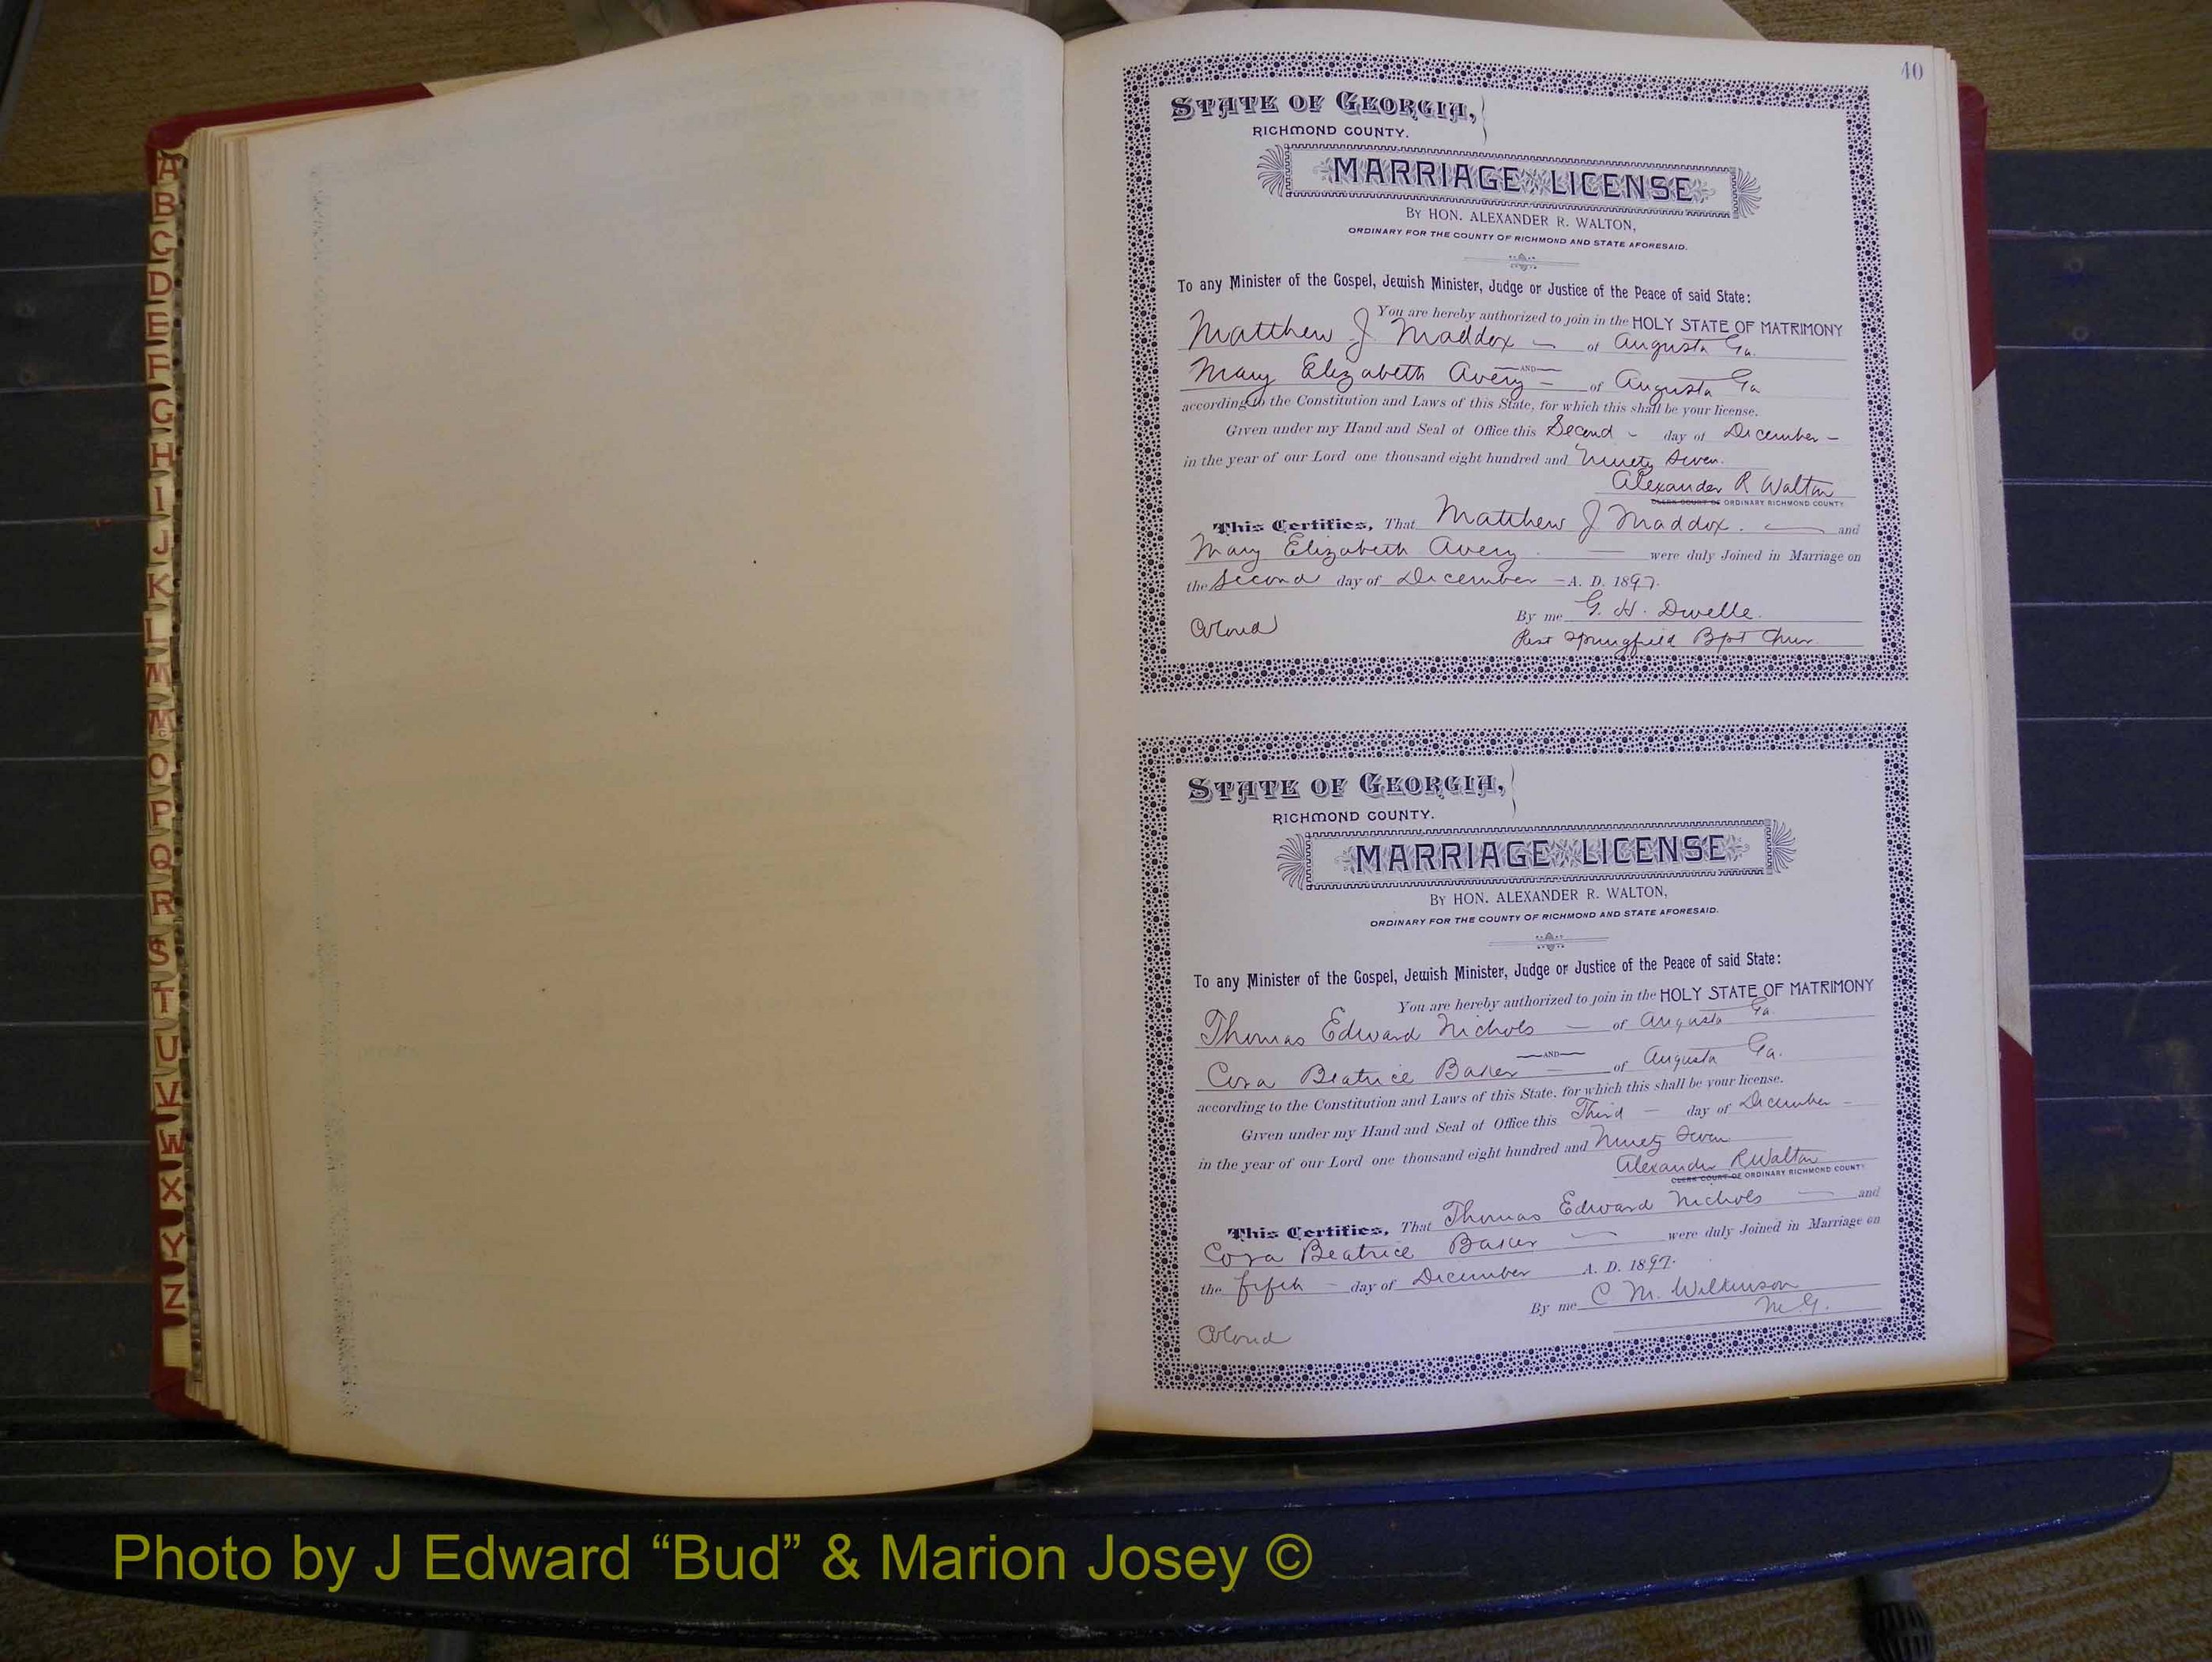 A
B
C
D
E
F
G
H
I
J
K
L
M
Mc
O
P
Q
R
S
T
U
V
W
X
Y
Z
40
STATE OF GEORGIA,
RICHMOND COUNTY.
MARRIAGE LICENSE
BY HON. ALEXANDER R. WALTON,
ORDINARY FOR THE COUNTY OF RICHMOND AND STATE AFORESAID.
To any Minister of the Gospel, Jewish Minister, Judge or Justice of the Peace of said State:
You are hereby authorized to join in the HOLY STATE OF MATRIMONY
Matthew J Maddox of Augusta Ga.
AND
Mary Elizabeth Avery of Augusta Ga
according to the Constitution and Laws of this State, for which this shall be your license.
Given under my Hand and Seal of Office this Second day of December
in the year of our Lord one thousand eight hundred and Ninety Seven.
Alexander R Walton
CLERK COURT OF ORDINARY RICHMOND COUNTY
This Certifies, That Matthew J Maddox. and
Mary Elizabeth Avery were duly Joined in Marriage on
the Second day of December A. D. 1897.
By me G. H. Dwelle.
Colored Past Springfield Bpt Chur.
STATE OF GEORGIA,
RICHMOND COUNTY.
MARRIAGE LICENSE
BY HON. ALEXANDER R. WALTON,
ORDINARY FOR THE COUNTY OF RICHMOND AND STATE AFORESAID.
To any Minister of the Gospel, Jewish Minister, Judge or Justice of the Peace of said State:
You are hereby authorized to join in the HOLY STATE OF MATRIMONY
Thomas Edward Nichols of Augusta Ga.
AND
Cora Beatrice Baker of Augusta Ga.
according to the Constitution and Laws of this State, for which this shall be your license.
Given under my Hand and Seal of Office this Third day of December
in the year of our Lord one thousand eight hundred and Ninety Seven
Alexander R Walton
CLERK COURT OF ORDINARY RICHMOND COUNTY
This Certifies, That Thomas Edward Nichols and
Cora Beatrice Baker were duly Joined in Marriage on
the fifth day of December A. D. 1897.
By me C M. Wilkinson
M. G.
Colored
Photo by J Edward “Bud” & Marion Josey ©